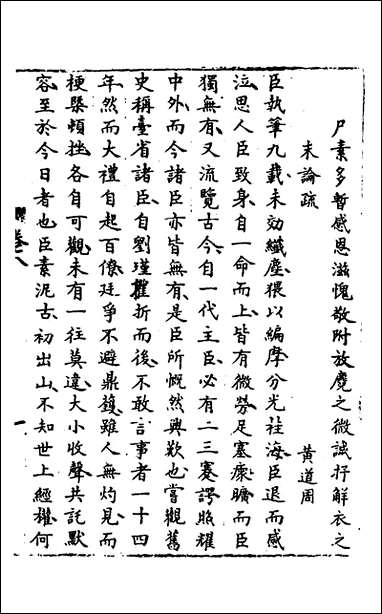 尸素多暫感恩滋愧敬附放麑之微誠抒解衣之
末論疏
黃道周
臣執筆九載未効纖塵猥以編摩分光祛海臣退而感
泣思人臣致身自一命而上皆有微勞足塞瘝曠而臣
獨無有又流覽古今自一代主臣必有二三蹇諤照耀
中外而今諸臣亦皆無有是臣所慨然興歎也嘗觀舊
史稱臺省諸臣自劉瑾摧折而後不敢言事者一十四
年然而大禮自起百僚廷爭不避鼎鑊雖人無灼見而
梗槩頓挫各自可觀未有一往莫違大小收聲共託默
容至於今日者也臣素泥古初出山不知世上經權何
卷八
一